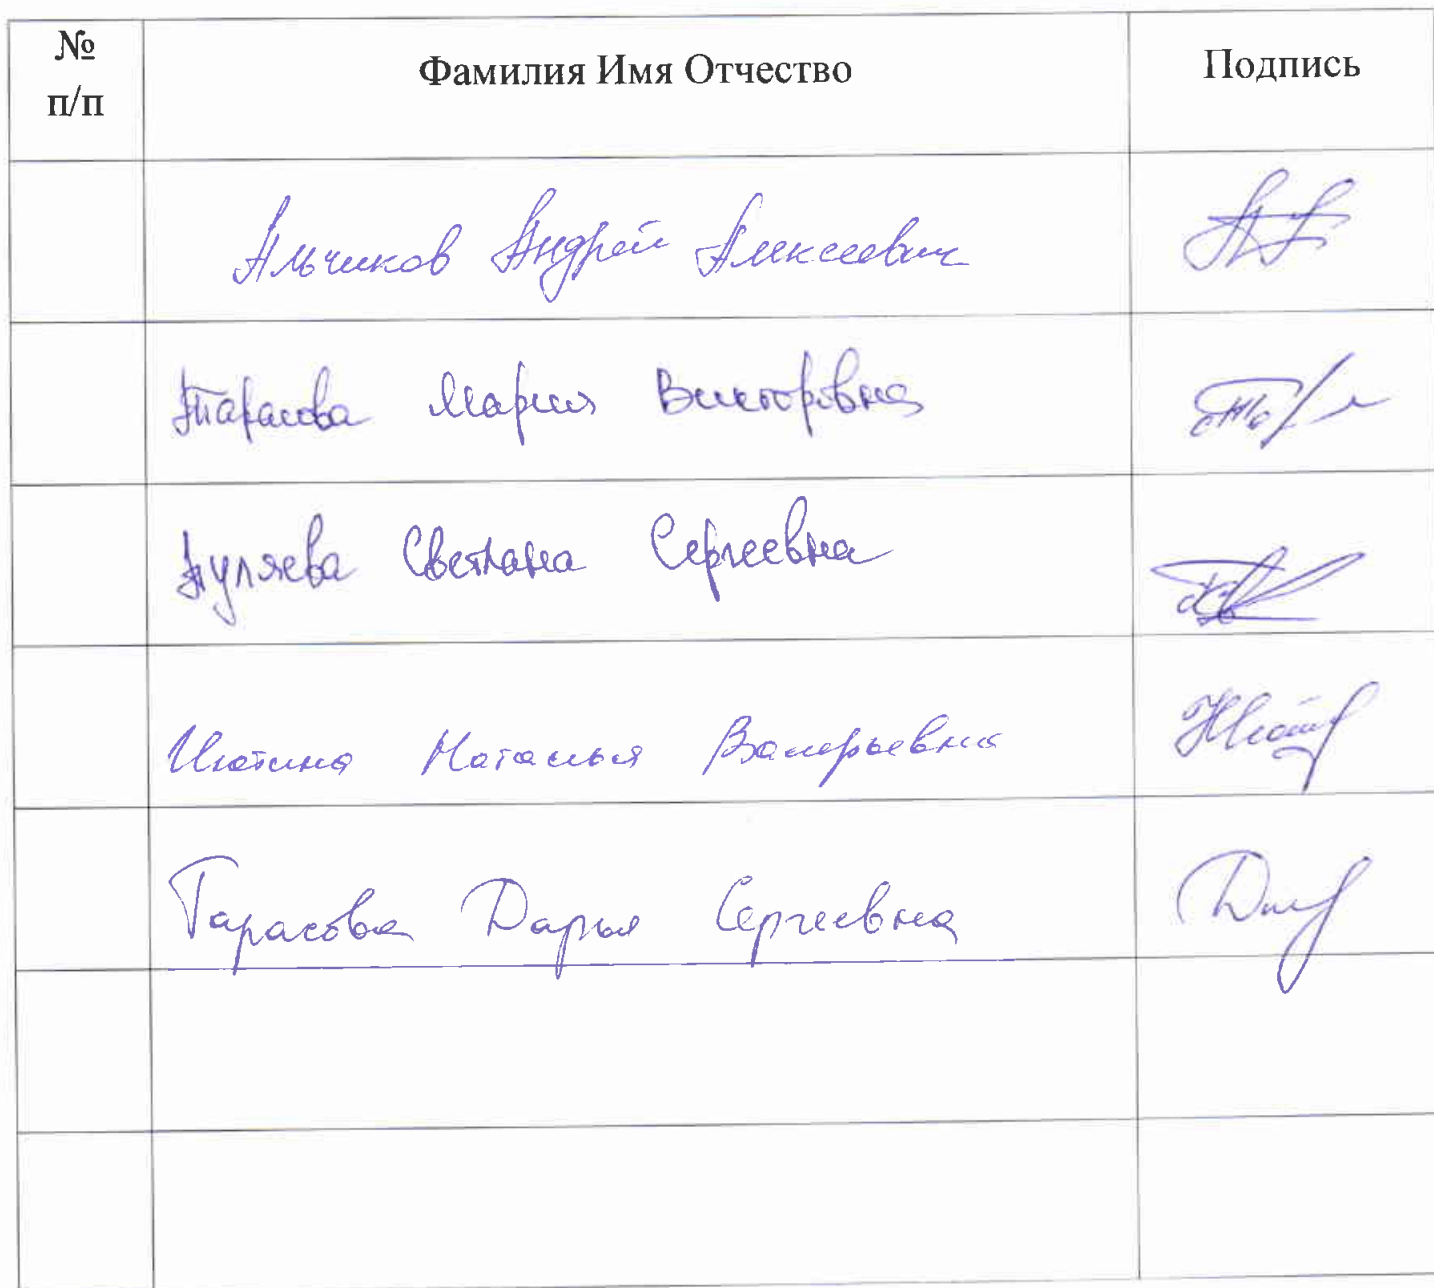 № п/п Фамилия Имя Отчество Подпись
Альчиков Андрей Алексеевич
Тарасова Мария Викторовна
Светлана Сергеевна
Наталья Валерьевна
Тарасова Дарья Сергеевна